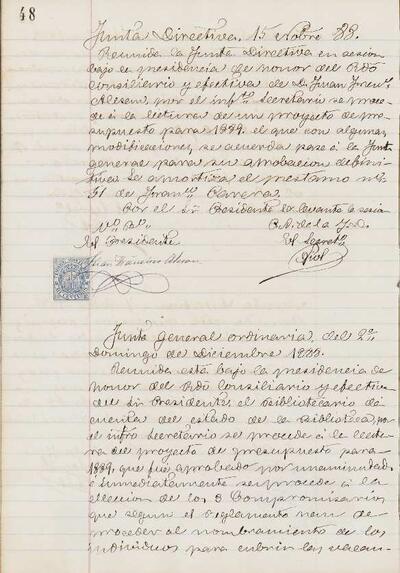 48
Junta Directiva, 15 Nobre 88.
Reunida la Junta Directiva en sesion
bajo la presidencia de honor del Rdó
Consiliario y efectiva de D. Juan Francº
Alesan, por el infto Secretario se proce-
de á la lectura de un proyecto de pre-
supuesto para 1889, el que con algunas
modificaciones, se acuerda pase á la Junta
general para su aprobacion defini-
tiva. Se amortiza el prestamo nº
51 de Francº Carera.
Por el Sr Presidente se levanta la sesion
Vº Bº
P. A. de la J. D.
El Presidente
El Secretº
Juan Francisco Alesan
Junta general ordinaria, del 2º
Domingo de Diciembre 1888.
Reunida esta bajo la presidencia de
honor del Rdó Consiliario y efectiva
del Sr Presidente, el Bibliotecario dá
cuenta del estado de la Biblioteca, por
el infto Secretario se procede á la lectu-
ra del proyecto de presupuesto para
1889, que fué aprobado por unanimidad
é inmediatamente se procede á la
eleccion de los 8 Compromisarios
que segun el Reglamento han de
proceder al nombramiento de los
individuos para cubrir las vacan-